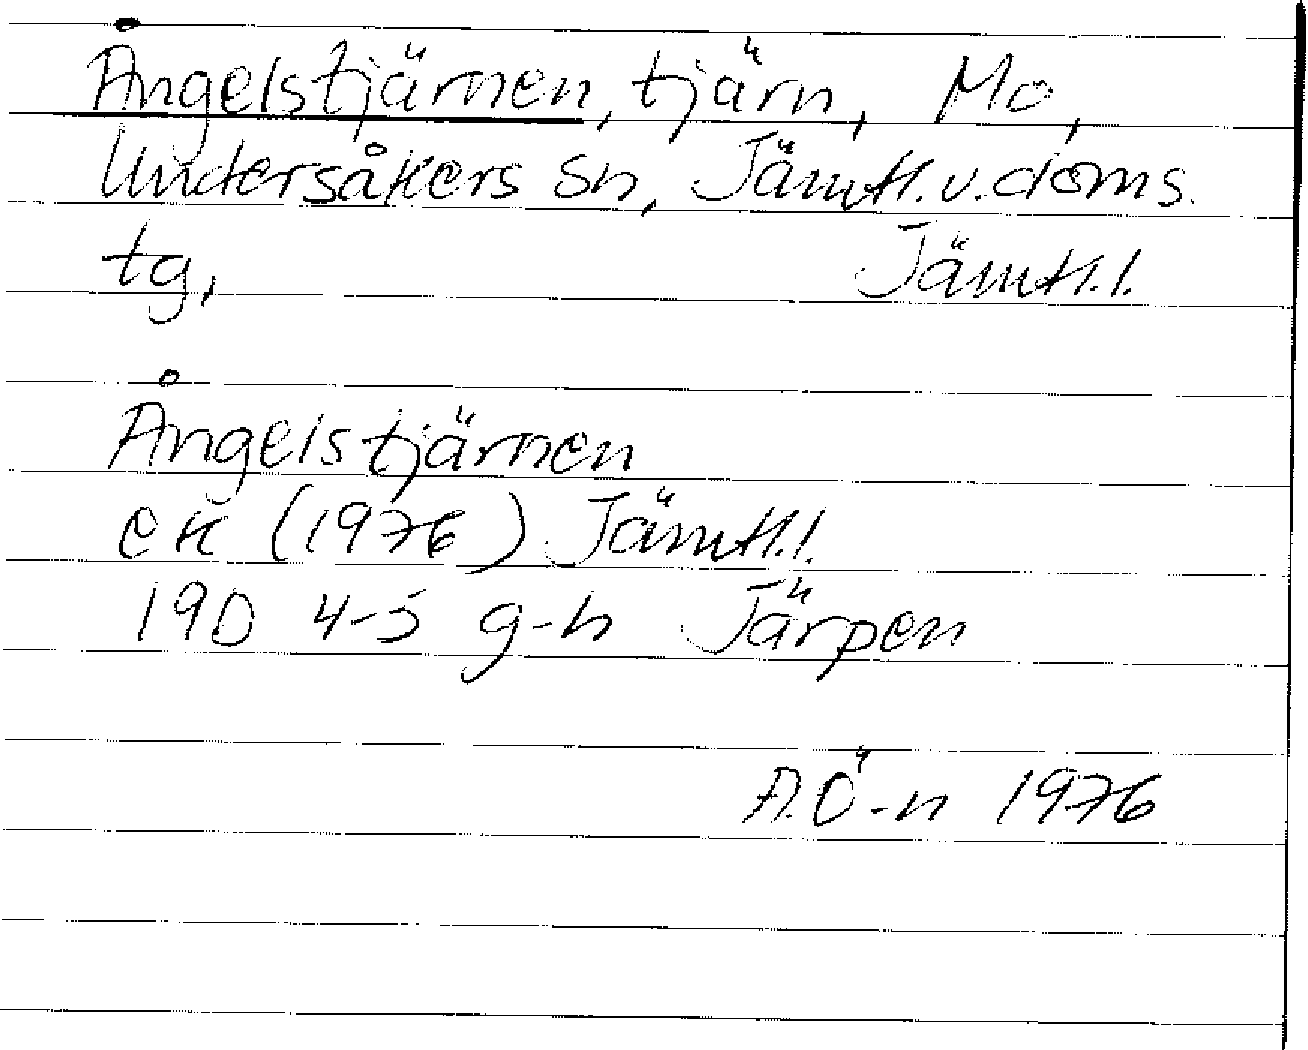 Ångelstjärnen, tjärn, Mo,
Undersåkers sn, Jämtl. v. doms.
tg, Jämtl. l.
Ångelstjärnen
ek (1976) Jämtl. l.
19D 4-5 g-h Järpen
A.Ö-n 1976